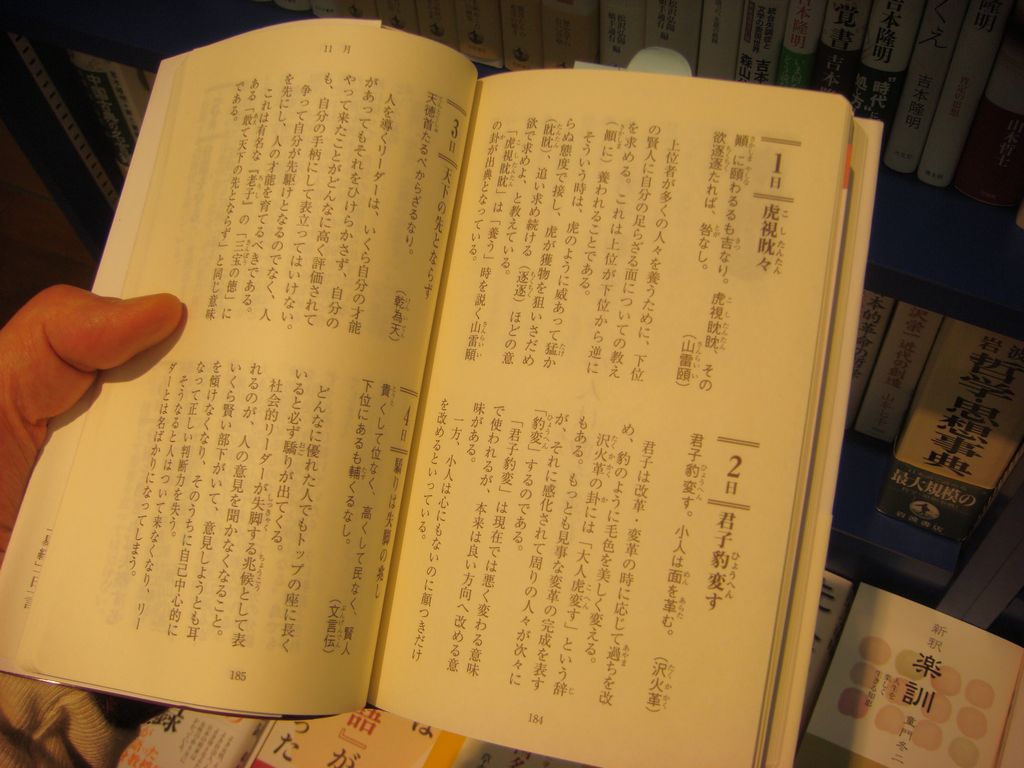 1日 虎視眈々
顚に頤わるるも吉なり。虎視眈眈、その
欲逐逐たれば、咎なし。
(山雷頤)
上位者が多くの人々を養うために、下位
の賢人に自分の足らざる面についての教え
を求める。これは上位が下位から逆に
(顚に)養われることである。
そういう時は、虎のように威あって猛か
らぬ態度で接し、虎が獲物を狙いさだめ
(眈眈)、追い求め続ける(逐逐)ほどの意
欲で求めよ、と教えている。
「虎視眈眈」は「養う」時を説く山雷頤
の卦が出典となっている。
2日 君子豹変す
君子豹変す。小人は面を革む。
(沢火革)
君子は改革・変革の時に応じて過ちを改
め、豹のように毛色を美しく変える。
沢火革の卦には「大人虎変す」という辞
もある。もっとも見事な変革の完成を表す
が、それに感化されて周りの人々が次々に
「豹変」するのである。
「君子豹変」は現在では悪く変わる意味
で使われるが、本来は良い方向へ改める意
味がある。
一方、小人は心にもないのに顔つきだけ
を改めるといっている。
184
11月
3日 天下の先とならず
天徳首たるべからざるなり。
(乾為天)
人を導くリーダーは、いくら自分の才能
があってもそれをひけらかさず、自分の
やって来たことがどんなに高く評価されて
も、自分の手柄にして表立ってはいけない。
争って自分が先駆けとなるのでなく、人
を先にし、人の才能を育てるべきである。
これは有名な『老子』の「三宝の徳」に
ある「敢て天下の先とならず」と同じ意味
である。
4日 驕りは失脚の兆し
貴くして位なく、高くして民なく、賢人
下位にあるも輔くるなし。
(文言伝)
どんなに優れた人でもトップの座に長く
いると必ず驕りが出てくる。
社会的リーダーが失脚する兆候として表
れるのが、人の意見を聞かなくなること。
いくら賢い部下がいて、意見しようとも耳
を傾けなくなり、そのうちに自己中心的に
なって正しい判断力を失う。
そうなると人はついて来なくなり、リー
ダーとは名ばかりになってしまう。
185
吉本隆明
吉本隆明
岩波
哲学思想事典
最大規模の
岩波書店
新釈
楽訓
童門冬二